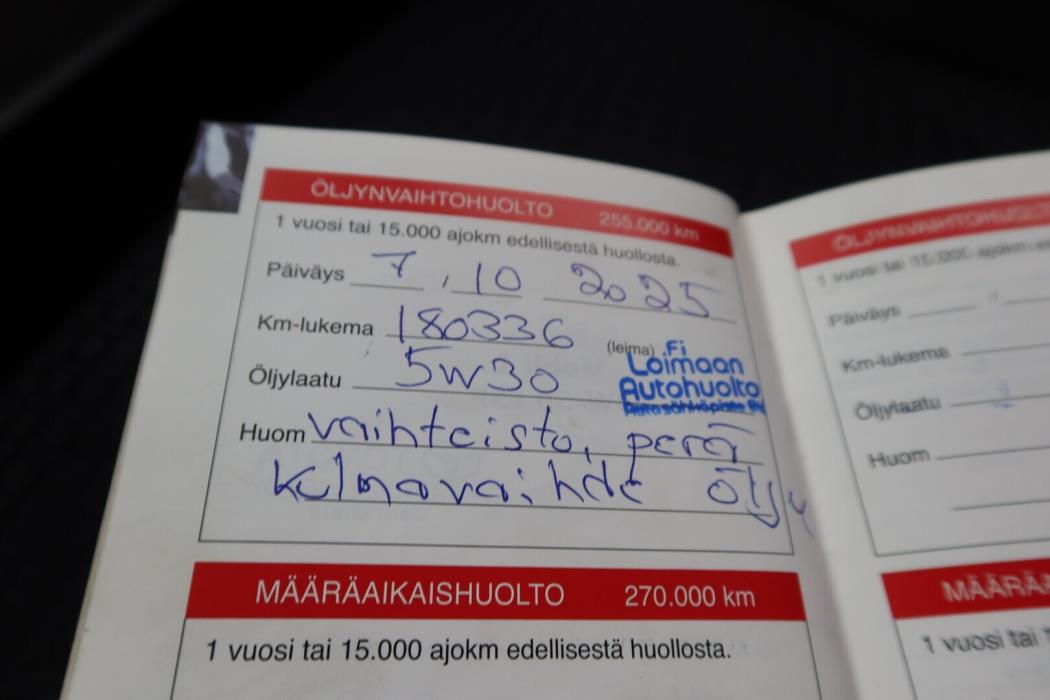 ÖLJYNVAIHTOHUOLTO 255.000 km
1 vuosi tai 15.000 ajokm edellisestä huollosta.
Päiväys 7 , 10 2025
Km-lukema 180336
(leima) .Fi
Loimaan
Autohuolto
Autosähköpiste Oy
Öljylaatu 5W30
Huom vaihteisto, perä
kulmavaihde öljy
MÄÄRÄAIKAISHUOLTO 270.000 km
1 vuosi tai 15.000 ajokm edellisestä huollosta.
ÖLJYNVAIHTOHUOLTO
1 vuosi tai 15.000 ajokm
Päiväys
Km-lukema
Öljylaatu
Huom
MÄÄRÄA
1 vuosi tai 1